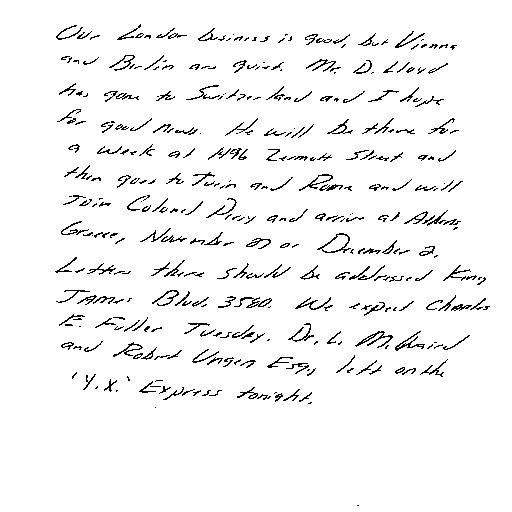 Our London business is good, but Vienna
and Berlin are quiet. Mr. D. Lloyd
has gone to Switzerland and I hope
for good news. He will be there for
a week at 1496 Zermott Street and
then goes to Turin and Rome and will
join Colonel Perry and arrive at Athens,
Greece, November 27 or December 2.
Letters there should be addressed King
James Blvd. 3580. We expect Charles
E. Fuller Tuesday. Dr. L. McQuaird
and Robert Unger Esq., left on the
'Y.X.' Express tonight.